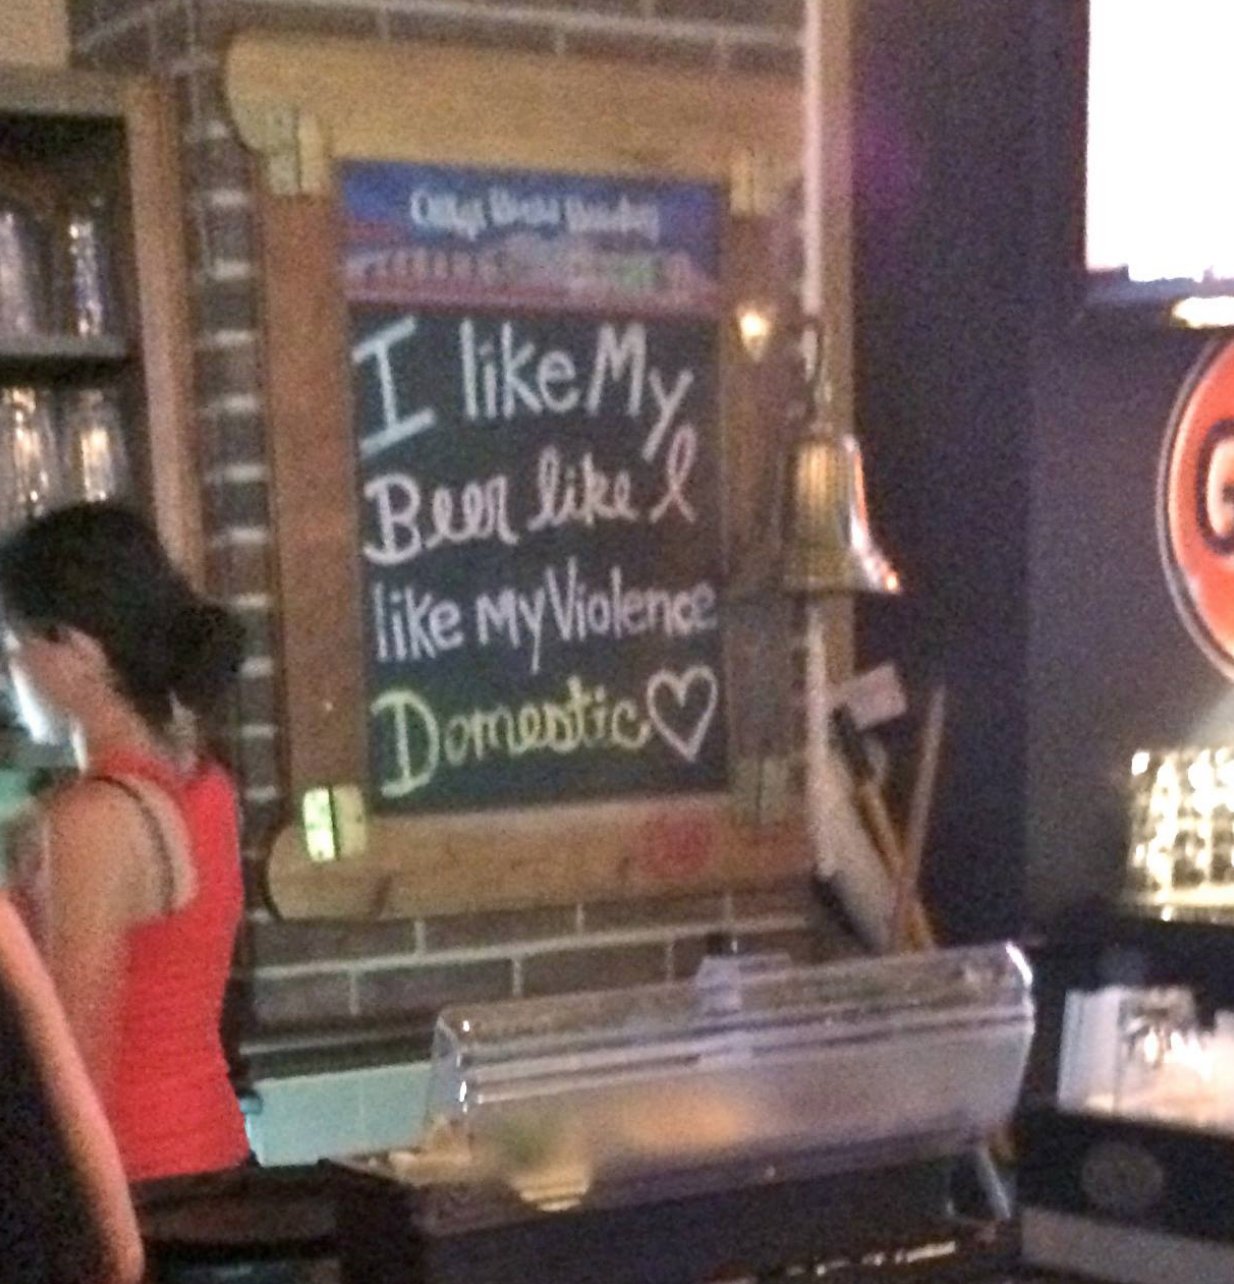 I like My
Beer like I
like My Violence
Domestic
G